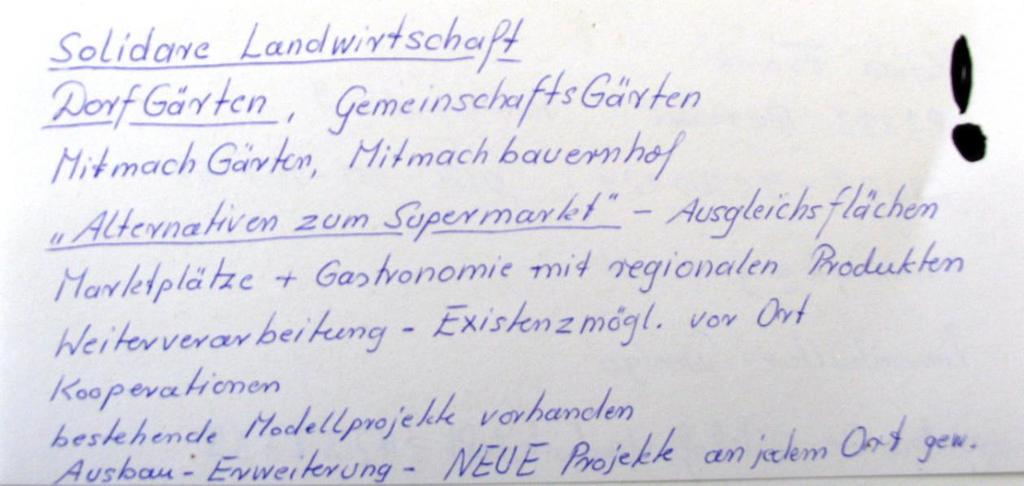 Solidare Landwirtschaft
DorfGärten, GemeinschaftsGärten
MitmachGärten, Mitmachbauernhof
„Alternativen zum Supermarkt" - Ausgleichsflächen
Marktplätze + Gastronomie mit regionalen Produkten
Weiterverarbeitung - Existenzmögl. vor Ort
Kooperationen
bestehende Modellprojekte vorhanden
Ausbau - Erweiterung - NEUE Projekte an jedem Ort gew.
!